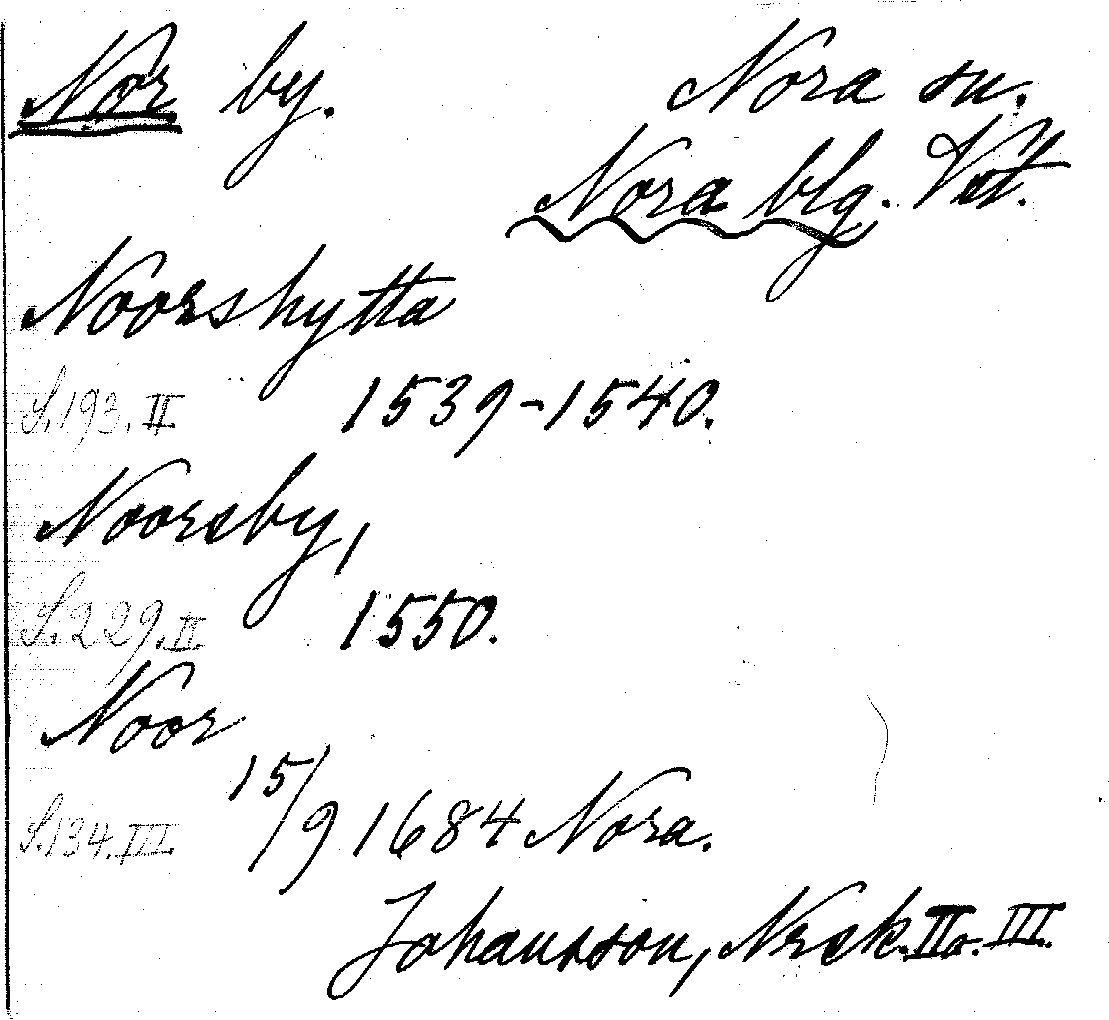 Nor by. Nora sn.
Nora blg. Vstm.
Noorshytta
S.193.II 1539-1540.
Noorsby,
S.229.II 1550.
Noor
S.134.III. 15/9 1684 Nora.
Johansson, Norsk. II o. III.